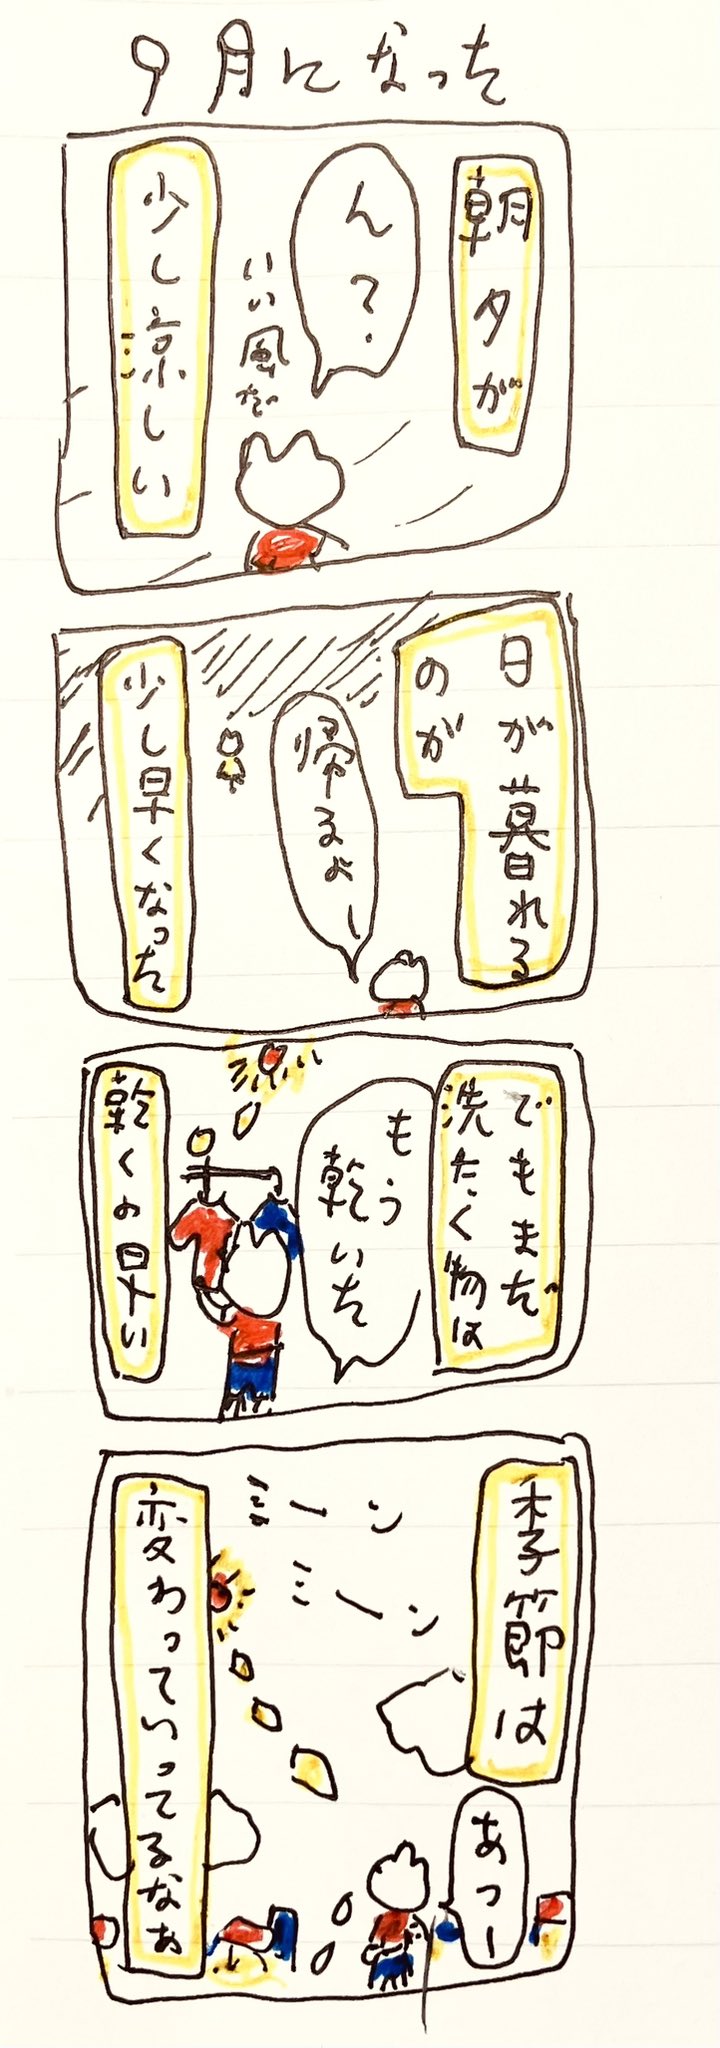 9月になった
朝夕が
ん?
いい風だ
少し涼しい
日が暮れる
のが
帰るよー
少し早くなった
でもまだ
洗たく物は
もう
乾いた
乾くの早い
季節は
ミーン
ミーン
あつー
変わっていってるなぁ